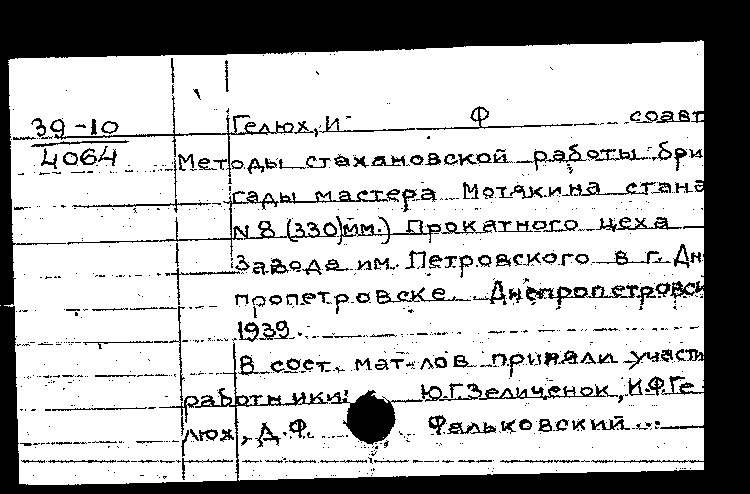 39-10
4064
Гелюх, И Ф соавт
Методы стахановской работы бри
гады мастера Мотякина стана
N 8 (330 мм.) Прокатного цеха
Завода им. Петровского в г. Дн
пропетровске. Днепропетровск
1939.
В сост. мат-лов приняли участи
работники: Ю.Г. Зеличенок, И.Ф. Ге
люх, Д.Ф. Фальковский ...